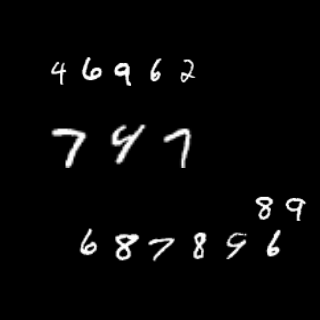 46962
747
89
687896